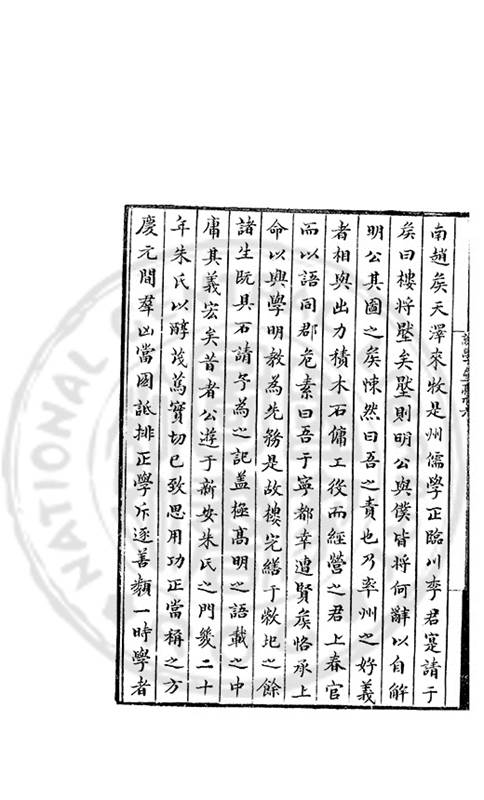 南趙矦天澤來牧是州儒學正臨川李君寔請于
矦曰樓將壓矣壓則明公與僕皆將何辭以自解
明公其圖之矦悚然曰吾之責也乃率州之好義
者相與出力積木石傭工役而經營之君上春官
而以語同郡危素曰吾于寧都幸遭賢矦恪承上
命以興學明教為先務是故樓完繕于敝圮之餘
諸生既具石請予為之記蓋極高明之語載之中
庸其義宏矣昔者公遊于新安朱氏之門幾二十
年朱氏以醇篤實切已致思用功正當稱之方
慶元間羣凶當國詆排正學斥逐善類一時學者
NATIONAL